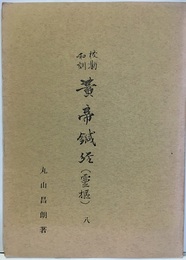 校勘
和訓
黄帝鍼经(靈樞) 八
丸山昌朗著